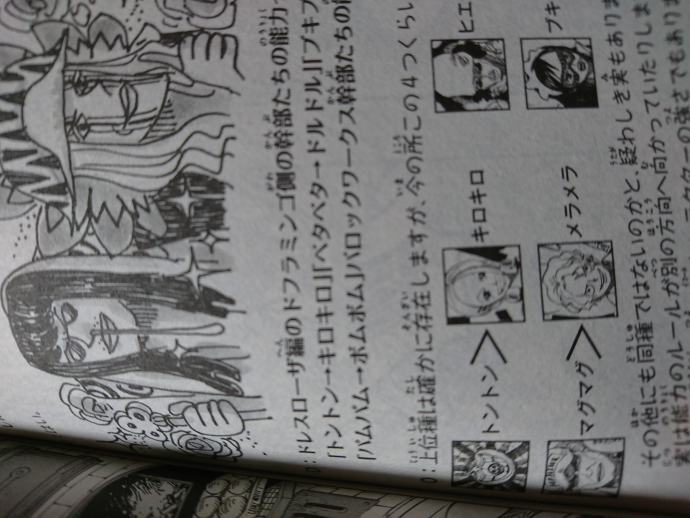 D：ドレスローザ編のドフラミンゴ側の幹部たちの能力
「トントン→キロキロ」「ベタベタ→ドルドル」「ブキブ
「ハムバム→ボムボム」バロックワークス幹部たちの
O：上位種は確かに存在しますが、今の所この4つくらい
トントン＞キロキロ
ヒエ
マグマグ＞メラメラ
ブキ
その他にも同種ではないのかと、疑わしき実もありま
実は能力のルールが別の方向へ向かっていたりしま
クターの強さでもあり